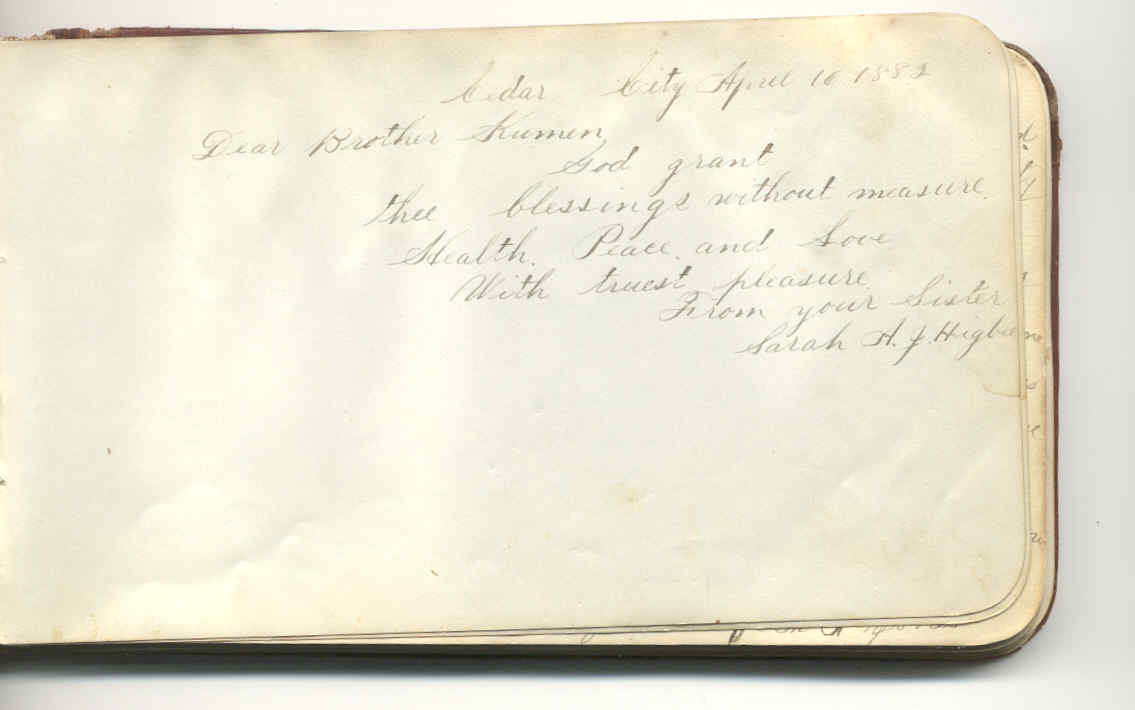 Cedar City April 16 1882
Dear Brother Kumen
God grant
thee blessings without measure.
Health. Peace. and Love
With truest pleasure
From your Sister
Sarah A. J. Higbee